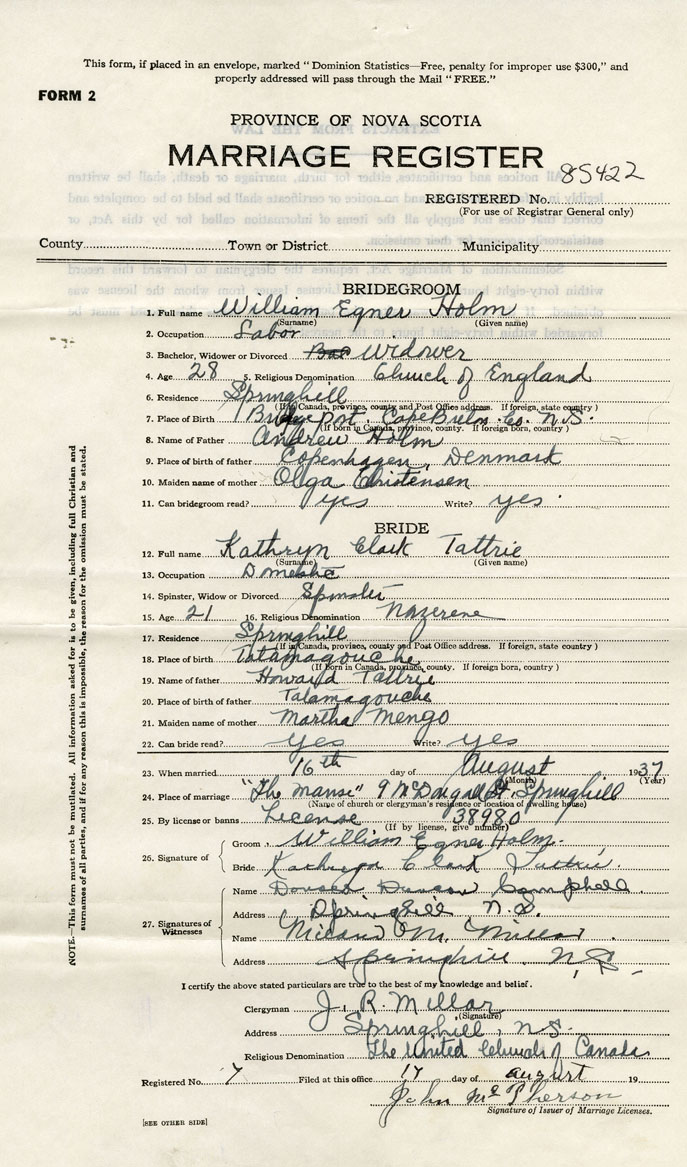 This form, if placed in an envelope, marked "Dominion Statistics—Free, penalty for improper use $300," and
properly addressed will pass through the Mail "FREE."
FORM 2
PROVINCE OF NOVA SCOTIA
MARRIAGE REGISTER
85422
REGISTERED No.
(For use of Registrar General only)
County Town or District Municipality
BRIDEGROOM
1. Full name William Egner Holm
(Surname) (Given name)
2. Occupation Labor
3. Bachelor, Widower or Divorced Widower
4. Age 28 5. Religious Denomination Church of England
6. Residence Springhill
(If in Canada, province, county and Post Office address. If foreign, state country)
7. Place of Birth Bridgeport, Cape Breton Co. N.S.
(If born in Canada, province, county. If foreign born, country)
8. Name of Father Andrew Holm
9. Place of birth of father Copenhagen, Denmark
10. Maiden name of mother Olga Christensen
11. Can bridegroom read? yes Write? yes
BRIDE
12. Full name Kathryn Clark Tattrie
(Surname) (Given name)
13. Occupation Domestic
14. Spinster, Widow or Divorced Spinster
15. Age 21 16. Religious Denomination Nazerene
17. Residence Springhill
(If in Canada, province, county and Post Office address. If foreign, state country)
18. Place of birth Tatamagouche
(If born in Canada, province, county. If foreign born, country)
19. Name of father Howard Tattrie
20. Place of birth of father Tatamagouche
21. Maiden name of mother Martha Mengo
22. Can bride read? yes Write? yes
23. When married 16th day of August 1937
(Month) (Year)
24. Place of marriage "The Manse" 9 McDougall St. Springhill
(Name of church or clergyman's residence or location of dwelling house)
25. By license or banns License 38980
(If by license, give number)
26. Signature of
Groom William Egner Holm
Bride Kathryn Clark Tattrie
27. Signatures of Witnesses
Name Duncan Campbell
Address Springhill N.S.
Name M. Millar
Address Springhill N.S.
I certify the above stated particulars are true to the best of my knowledge and belief.
Clergyman J. R. Millar
(Signature)
Address Springhill, N.S.
Religious Denomination The United Church of Canada
Registered No. 7 Filed at this office 17 day of August 19
John McPherson
Signature of Issuer of Marriage Licenses.
[SEE OTHER SIDE]
NOTE.—This form must not be mutilated. All information asked for is to be given, including full Christian and
surnames of all parties, and if for any reason this is impossible, the reason for the omission must be stated.